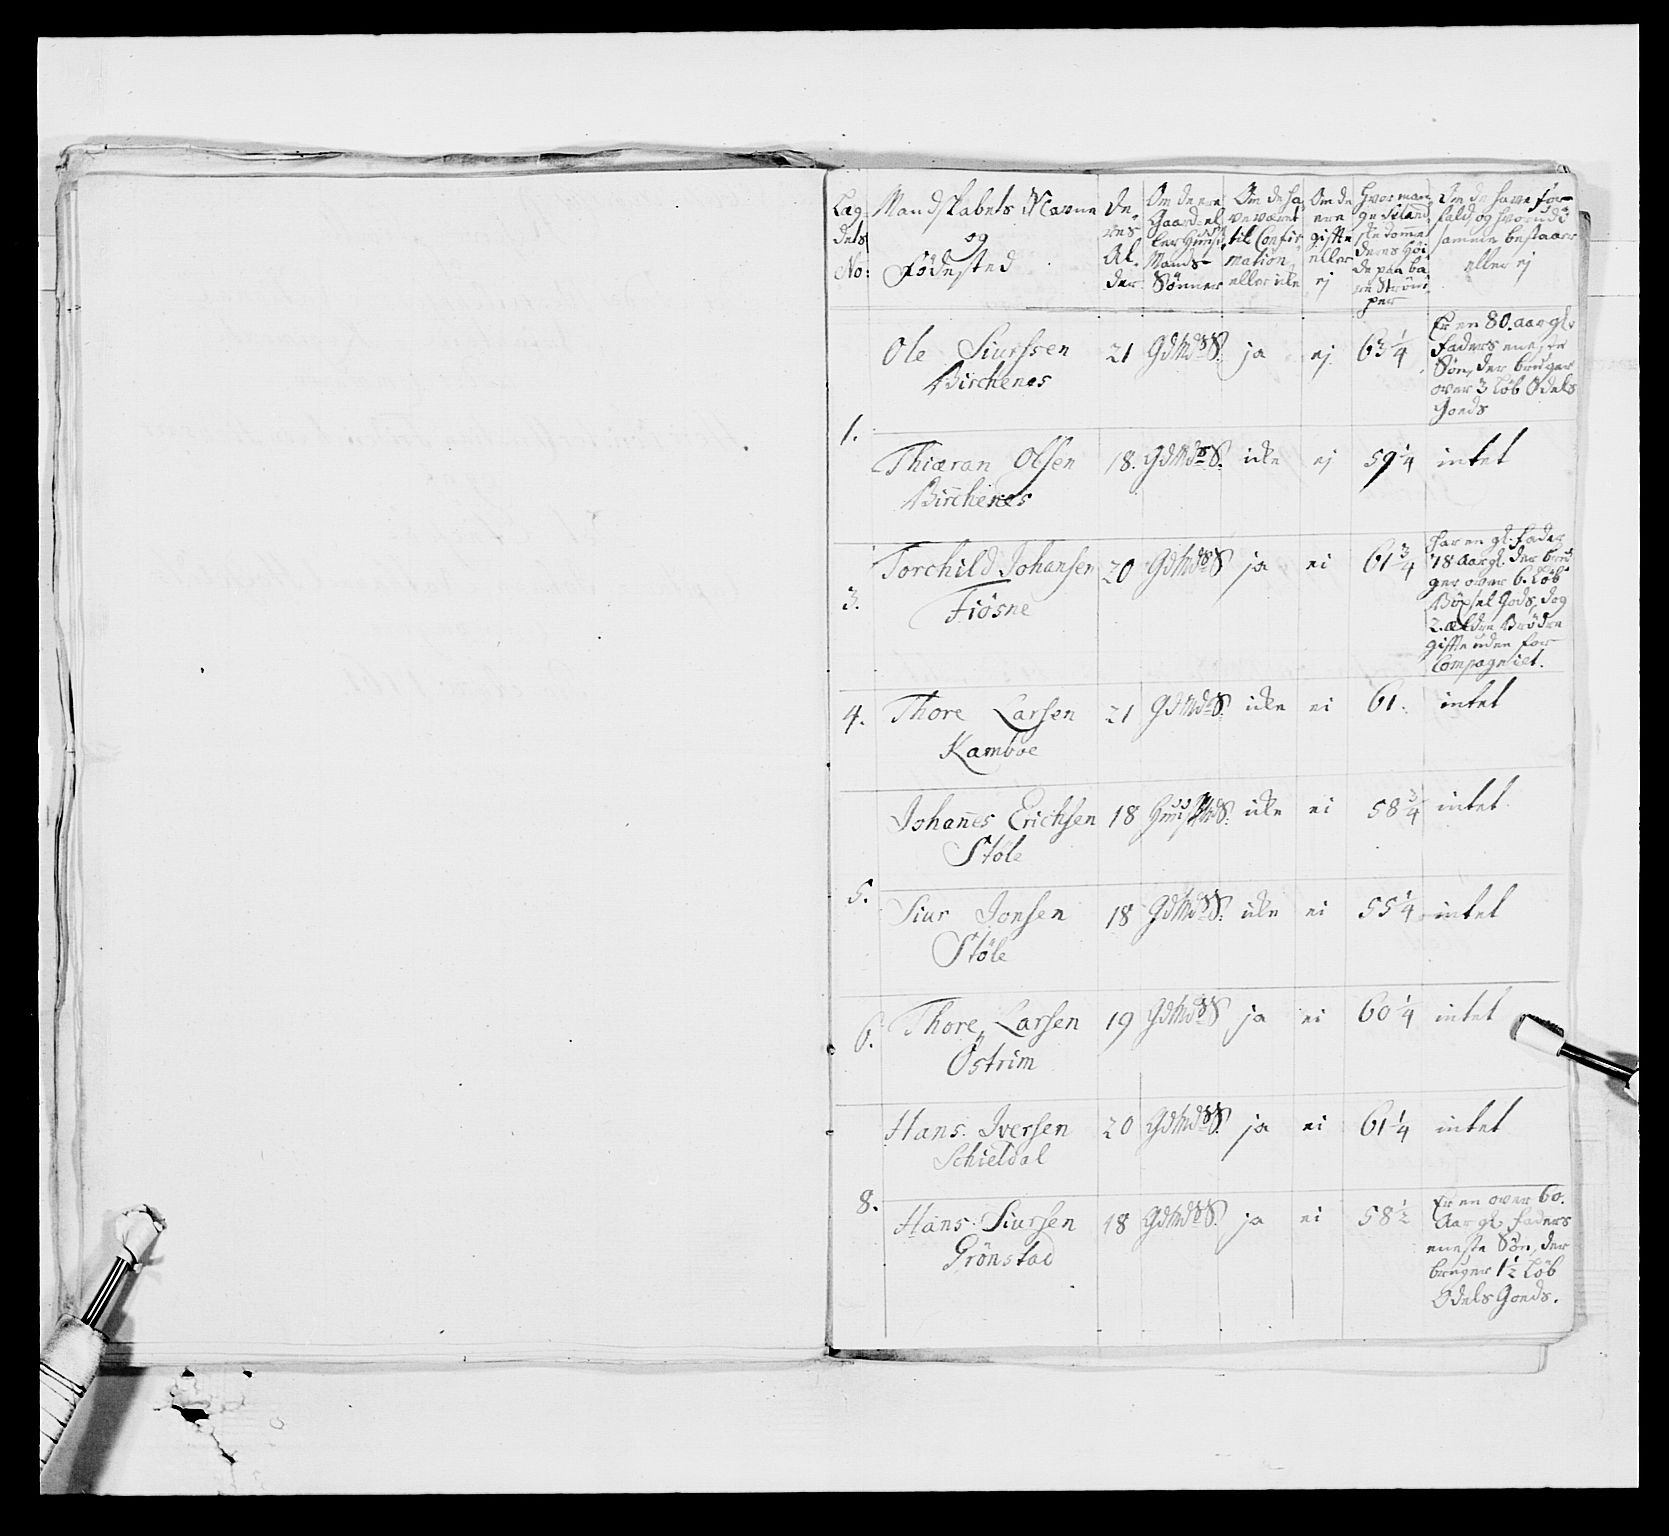 Læg-
dets
No:
Mandskabets Navne
og
Fødested
De-
res
Al-
der
Om de ere
Gaard- el-
ler Huus-
Mands-
Sønner
Om de ha-
ve været
til Confir-
mation
eller icke
Om de
ere
giffte
eller
ej
Hvor man-
ge Siæland-
ske tomme
deres Høi-
de paa ba-
re Strøm-
per
Om de have For-
fald, og hvorudi
samme bestaaer
eller ej
1.
Ole Siurssen
Birchenes
21
GdMds S.
ja
ej
63 1/4
Er en 80. aar gl.
Faders eneste
Søn, der bruger
over 3 Løb Odels
Goeds
Thiæran Olsen
Birchenes
18.
GdMds S.
icke
ej
59 1/4
intet
3.
Torchild Johansen
Fiøsne
20
GdMds S
ja
ei
61 3/4
har en gl. Fader
78 Aar gl. der bru-
ger over 6. Løb
Bøxel Gods, dog
2. ældre Brødre
giffte uden for
Compagniet.
4.
Thore Larsen
Kamboe
21
GdMds S.
icke
ei
61.
intet
5.
Johannes Erichsen
Støle
18
Huusmds S.
icke
ei
58 3/4
intet
Siur Jonsen
Støle
18
GdMds S.
icke
ei
55 1/4
intet
6.
Thore Larsen
Østrim
19
GdMds S
ja
ei
60 1/4
intet
8.
Hans Iversen
Schieldal
20
GdMds S.
ja
ei
61 1/4
intet
Hans Siursen
Grønstad
18
GdMds S.
ja
ei
58 1/2
Er en over 60.
Aar gl. Faders
eneste Søn, der
bruger 1 1/2 Løb
Odels Goeds.